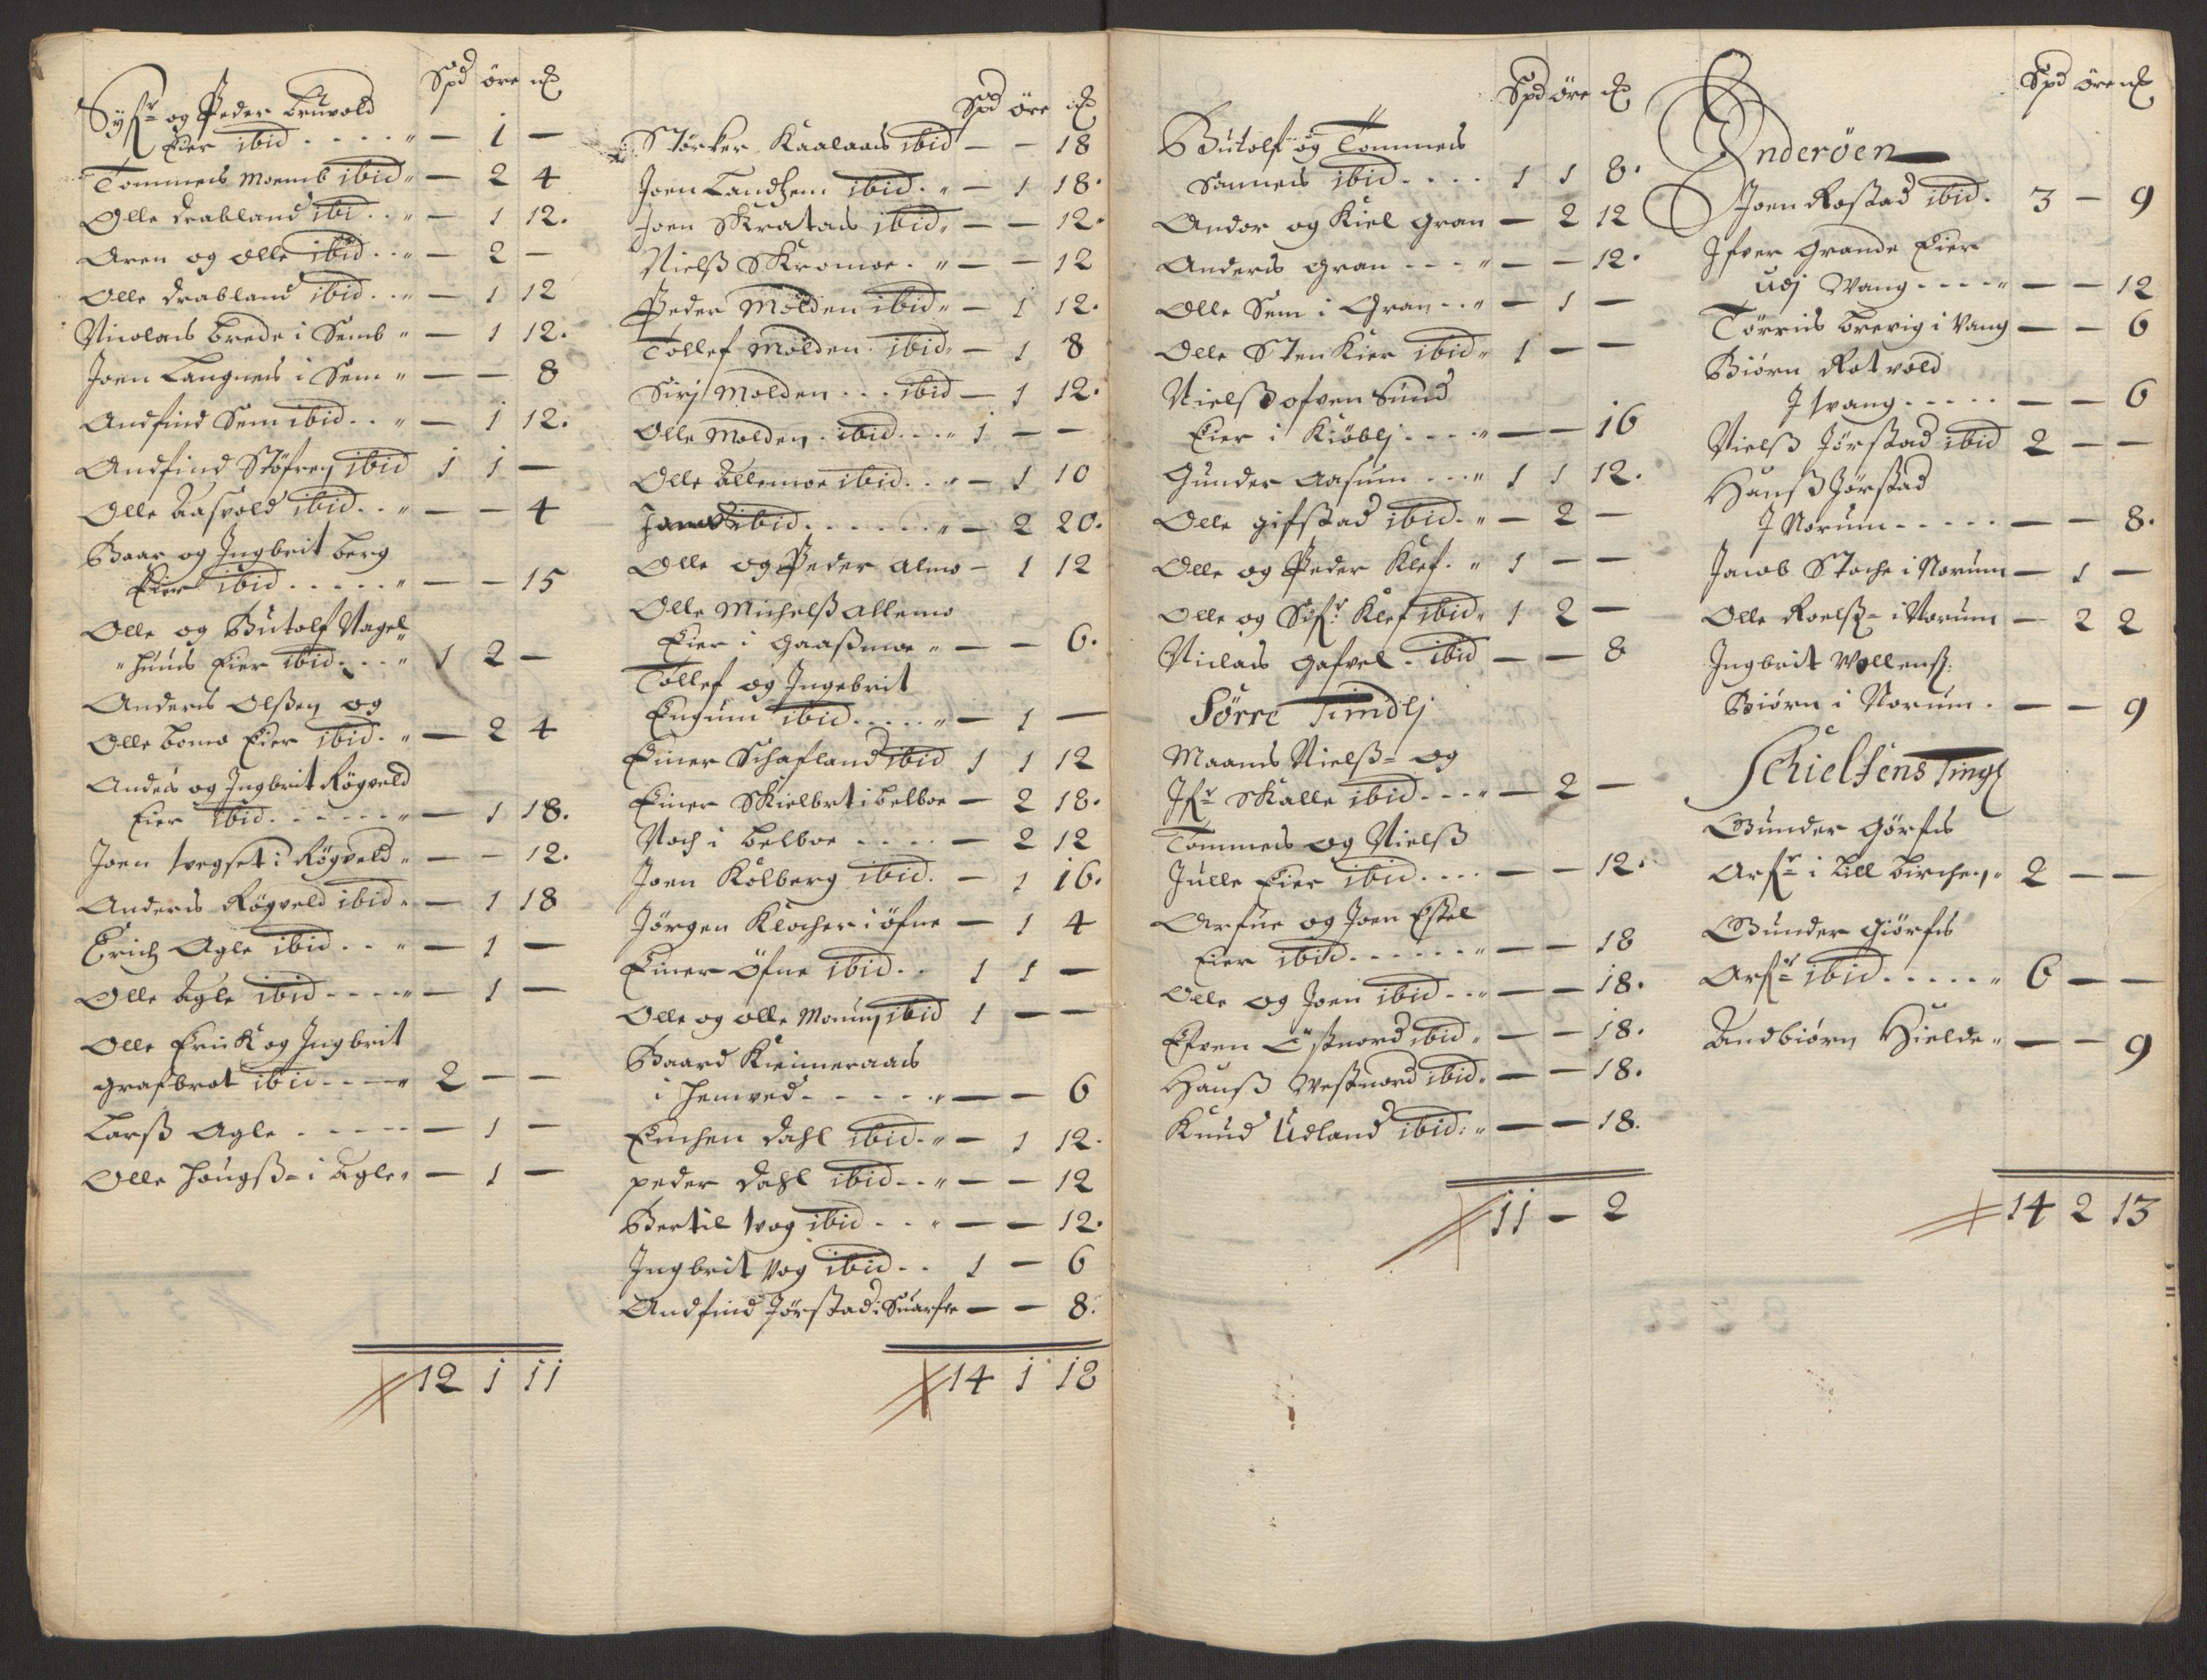 Spd öre mk
Syfr og Peder Bruvold
Eier ibid . . . . " — 1 —
Tommeis Moemb ibid " — 2 4
Olle Drabland ibi . . " — 1 12.
Aren og Olle ibid . . " — 2 —
Olle Drabland ibid . . " — 1 12
Nicolaus Brede i Semb " — 1 12.
Joen Langneis i Sem " — — 8
Andfind Sem ibid . . " — 1 12.
Andfind Støfren ibid 1 1 —
Olle Aasvold ibid . . " — — 4
Baar og Ingbrit berg
Eier ibid . . . . . " — — 15
Olle og Butolf Nagel-
"huus Eier ibid . . . " 1 2 —
Anders Olsen og
Olle bomo Eier ibid . " — 2 4
Anders og Ingbrit Røgveld
Eier ibid . . . . . . " — 1 18.
Joen tvegset i Røgveld " — — 12.
Anders Røgveld ibid " — 1 18
Erich Agle ibid . . " — 1 —
Olle Agle ibid - - - " — 1 —
Olle Erick og Ingbrit
Grafbrot ibid - - - " 2 — —
Larss Agle . - - - - — 1 —
Olle Hougss= i Agle " — 1 —
12 1 11

Spd öre mk
Størker Kaalaas ibid — — 18
Joen Landtzem ibid . " — 1 18.
Joen Skratas ibid " — — 12.
Nielss Kromoe . " — — 12
Peder Mölden ibid " — 1 12.
Tollef Mölden . ibid " — 1 8
Sirj Molden . . . ibid — 1 12.
Olle Molden . ibid . . . " 1 — —
Olle Allemoe ibid . . . " — 1 10
ibid . . . . . . . " — 2 20.
Olle og Peder Almo — 1 12
Olle Michelss Allemo
Eier i Gaassmoe " — — 6.
Tollef og Ingebrit
Engum ibid . . . . " — 1 —
Einer Schafland ibid 1 1 12
Einer Skielbrt i belboe — 2 18.
Noch i belboe . . . . — 2 12
Joen Kolberg ibid . — 1 16.
Jörgen Klocher i öfne — 1 4
Einer Öfne ibid . . 1 1 —
Olle og Olle Momny ibid 1 — —
Baard Kieimeraas
i Hemved - - - - " — — 6
Enchen Dahl ibid . " — 1 12.
peder Dahl ibid . . " — — 12
Bertil tvog ibid . . " — — 12.
Ingbrit Vog ibid . . 1 — 6
Andfind Jörstad i Snarfre — — 8.
14 1 18

Spd öre mk
Butolf og Tommeis
Sanneis ibid . . . . 1 1 8.
Andor og Kiel Gran — 2 12
Anders Gran - - - " — — 12.
Olle Sem i Gran - - " — 1 —
Olle Stenkier ibid " 1 — —
Nielss ofven Sund
Eier i Kiöblj . . . . " — — 16
Gunder Aasum . . . " 1 1 12.
Olle Gifstad ibid . " — 2 —
Olle og Peder Klef . " 1 — —
Olle og Sifr Klef ibid " 1 2 —
Niclais Gafvel . ibid — — 8
Sørre Timdlj
Maans Nielss= og
Ifr Skalle ibid . . . " — 2 —
Tommeis og Nielss
Julle Eier ibid . . . . — — 12.
Arfue og Joen Estel
Eier ibid . . . . . . " — — 18
Olle og Joen ibid . . " — — 18.
Efven Östnord ibid " — — 18.
Hanss Westnord ibid " — — 18.
Knud Udland ibid : " — — 18.
11 — 2

Spd öre mk
Inderöen
Joen Rostad ibid . 3 — 9
Ifver Grande Eier
udj Wang . . . . " — — 12
Törris brevig i Vang — — 6
Biörn Rotvold
I tvang . . . . . — — 6
Nielss Jörstad ibid 2 — —
Hanss Jörstad
I Norum . . . . . — — 8.
Jacob Stoche i Norum — 1 —
Olle Roelss= i Norum — 2 2
Ingbrit Wollenss:
Biörn i Norum . — — 9
Schielfens Tingl
Gunder Görfis
Arfr i Lill birchen " 2 — —
Gunder Giörfis
Arfr ibid . . . . . " 6 — —
Andbiörn Hielde " — — 9
14 2 13